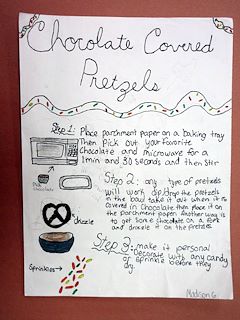 Chocolate Covered
Pretzels
Step 1: Place parchment paper on a baking tray
Then pick out your favorite
Chocolate and microwave for a
1min and 30 seconds and then stir
Pick
chocolate
Step 2: any type of pretzels
will work dip/drop the pretzels
in the bowl take it out when it is
covered in Chocolate then place it on
the parchment paper. Another way is
to get some chocolate on a fork
and drizzle it on the pretzel
drizzle
Step 3: make it personal
decorate with any candy
or sprinkle before they
dry.
Sprinkles→
Madison G.